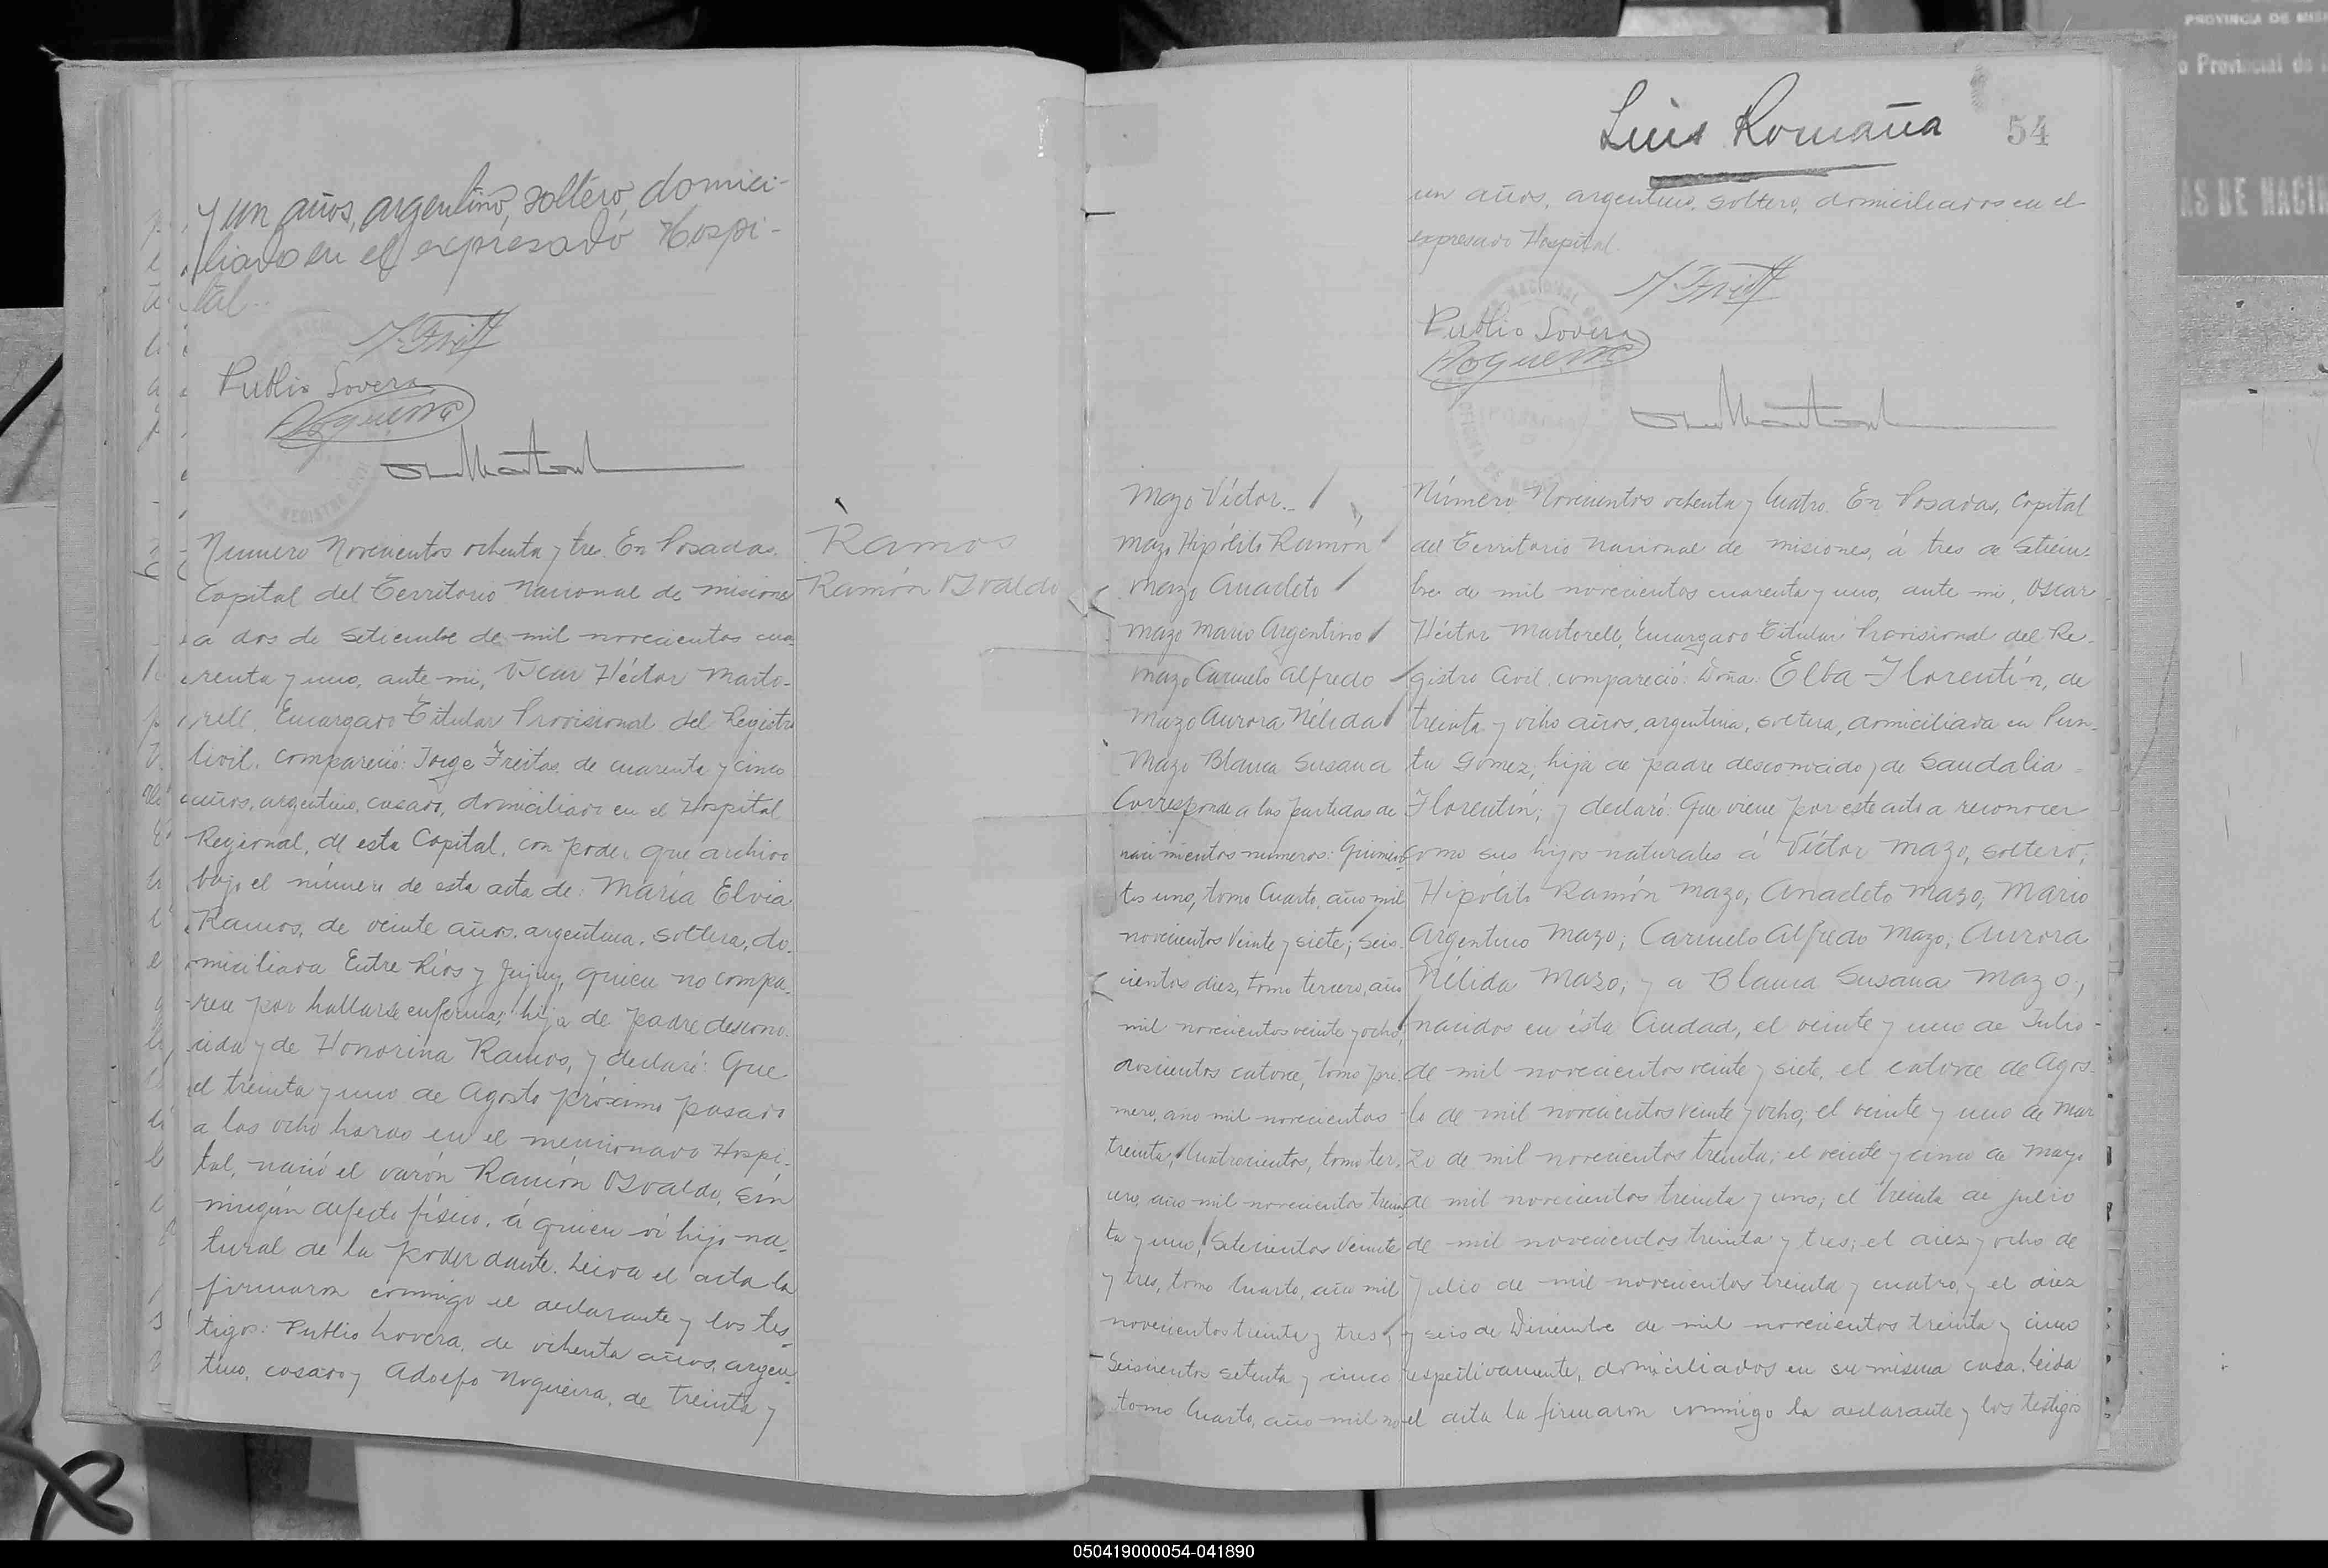 y un años, argentino, soltero, domici-
liado en el expresado Hospi-
tal.
J. Freit
Publio Lovera
Nogueira
Número Novecientos ochenta y tres. En Posadas,
Capital del Territorio Nacional de Misiones
a dos de Setiembre de mil novecientos cua-
renta y uno, ante mi, Oscar Héctor Marto-
rell, Encargado Titular Provisional del Registro
Civil, compareció: Jorge Freitas, de cuarenta y cinco
años, argentino, casado, domiciliado en el Hospital
Regional, de esta Capital, con poder que archivo
bajo el número de esta acta de: María Elvia
Ramos, de veinte años, argentina, soltera, do-
miciliada Entre Ríos y Jujuy, quien no compa-
rece por hallarse enferma; hija de padre descono-
cido y de Honorina Ramos, y declaró: Que
el treinta y uno de Agosto próximo pasado
a las ocho horas en el mencionado Hospi-
tal, nació el varón Ramón Osvaldo, sin
ningún defecto físico, á quien vi hijo na-
tural de la poder dante. Leida el acta la
firmaron conmigo el declarante y los tes-
tigos: Publio Lovera, de ochenta años, argen-
tino, casado y Adolfo Nogueira, de treinta y
Ramos
Ramón Osvaldo
Luis Romaña
54
un años, argentino, soltero, domiciliados en el
expresado Hospital.
J. Freit
Publio Lovera
Nogueira
Mazo Víctor.
Mazo Hipólito Ramón
Mazo Anacleto
Mazo Mario Argentino
Mazo Carmelo Alfredo
Mazo Aurora Nélida
Mazo Blanca Susana
Corresponde a las partidas de
nacimientos numeros: Quinien-
tos uno, tomo Cuarto, año mil
novecientos Veinte y siete; seis-
cientos diez, tomo tercero, año
mil novecientos veinte y ocho,
doscientos catorce, tomo pri-
mero, año mil novecientos
treinta; Cuatrocientos, tomo ter-
cero, año mil novecientos trein-
ta y uno; Setecientos Veinte
y tres, tomo Cuarto, año mil
novecientos treinta y tres;
Seiscientos setenta y cinco
tomo Cuarto, año mil no-
Número Novecientos ochenta y Cuatro. En Posadas, Capital
del Territorio Nacional de Misiones, á tres de Setiem-
bre de mil novecientos cuarenta y uno, ante mi, Oscar
Héctor Martorell, Encargado Titular Provisional del Re-
gistro Civil, compareció: Doña: Elba Florentín, de
treinta y ocho años, argentina, soltera, domiciliada en Pun-
ta Gomez, hija de padre desconocido y de Sandalia
Florentín; y declaró: Que viene por este acto a reconocer
como sus hijos naturales á Víctor Mazo, soltero;
Hipólito Ramón Mazo; Anacleto Mazo; Mario
Argentino Mazo; Carmelo Alfredo Mazo; Aurora
Nélida Mazo; y a Blanca Susana Mazo,
nacidos en ésta Ciudad, el veinte y uno de Julio
de mil novecientos veinte y siete, el catorce de Agos-
to de mil novecientos veinte y ocho; el veinte y uno de Mar
zo de mil novecientos treinta; el veinte y cinco de Mayo
de mil novecientos treinta y uno; el treinta de julio
de mil novecientos treinta y tres; el diez y ocho de
Julio de mil novecientos treinta y cuatro, y el diez
y seis de Diciembre de mil novecientos treinta y cinco
respectivamente, domiciliados en su misma casa. Leida
el acta la firmaron conmigo la declarante y los testigos
PROVINCIA DE MIS
o Provincial de
AS DE NACIM
050419000054-041890